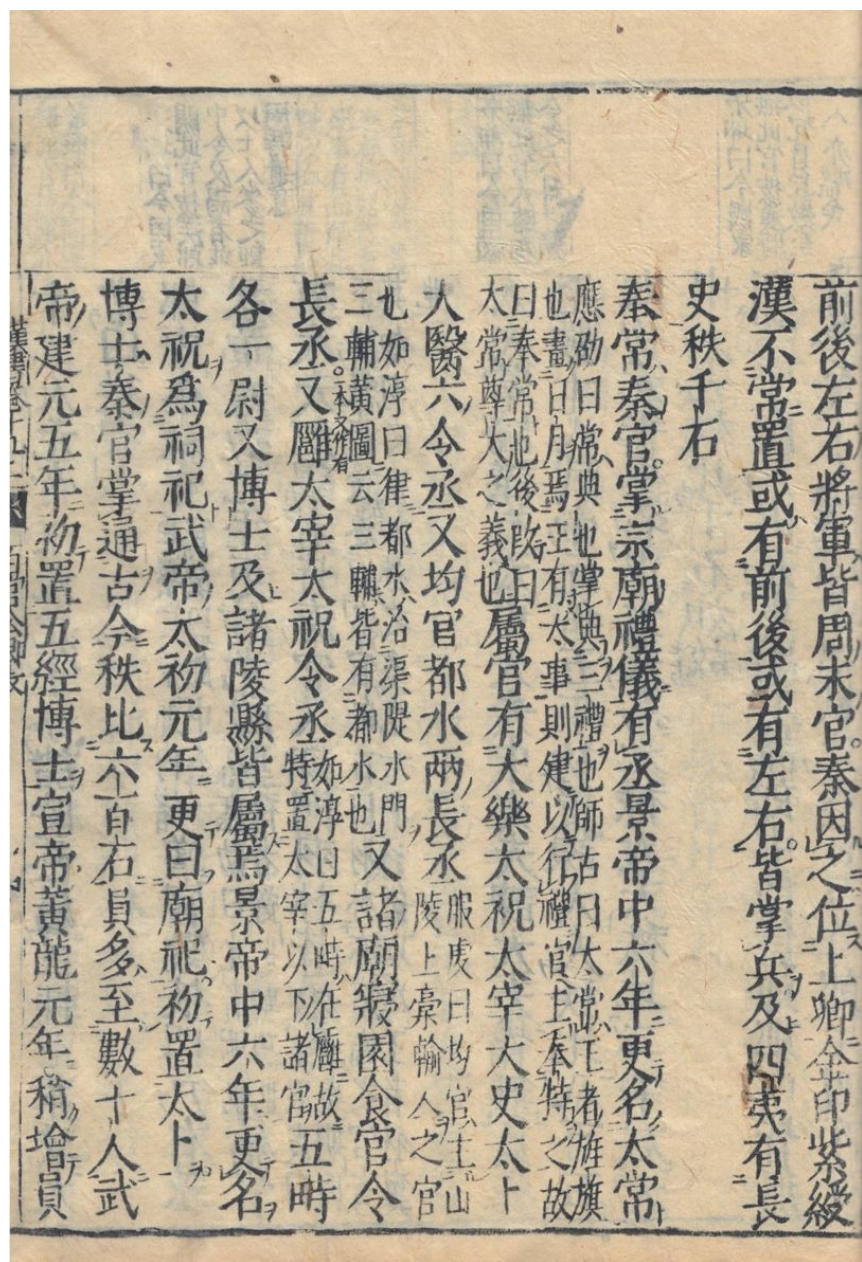 前後左右將軍皆周末官秦因之位上卿金印紫綬
漢不常置或有前後或有左右皆掌兵及四夷有長
史秩千石
奉常秦官掌宗廟禮儀有丞景帝中六年更名太常
應劭曰常典也掌典三禮也師古曰太常王者旌旗
也畫日月焉王有大事則建以行禮官主奉持之故
曰奉常也後改曰
太常尊大之義也
屬官有大樂太祝太宰大史太卜
大醫六令丞又均官都水兩長丞
服虔曰均官主山
陵上稾輸入之官
也如淳曰律都水治渠隄水門
三輔黃圖云三輔皆有都水也
又諸廟寢園食官令
長丞
一本丞作有
又廱太宰太祝令丞
如淳曰五畤在廱故
特置太宰以下諸官
五畤
各一尉又博士及諸陵縣皆屬焉景帝中六年更名
太祝爲祠祀武帝太初元年更曰廟祀初置太卜
博士秦官掌通古今秩比六百石員多至數十人武
帝建元五年初置五經博士宣帝黃龍元年稍增員